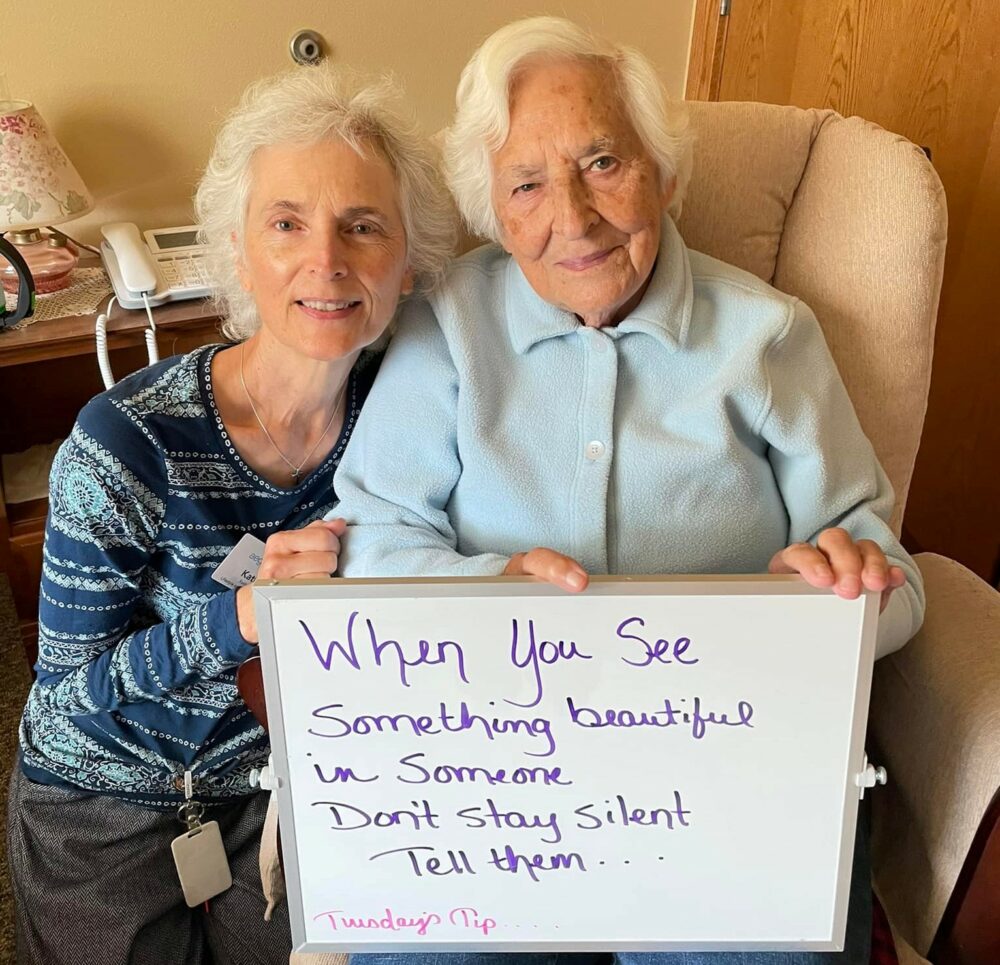 When You See
Something beautiful
in Someone
Don't stay silent
Tell them . . .
Tuesday's Tip . . . .